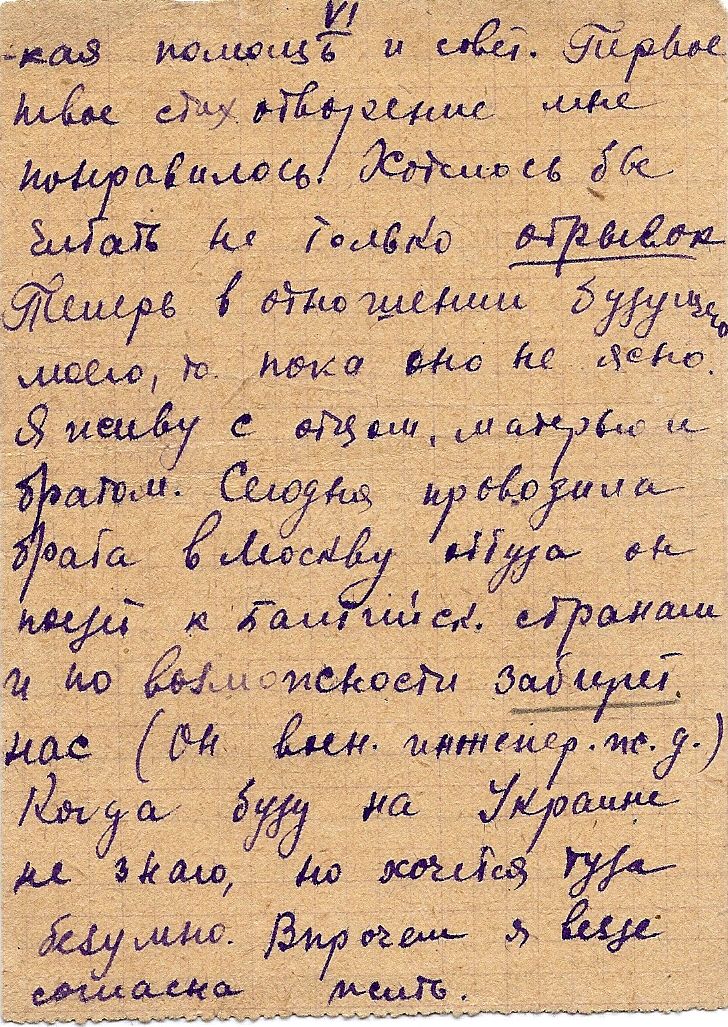 VI
-кая помощь и совет. Первое
твое стихотворение мне
понравилось. Хотелось бы
читать не только отрывок
Теперь в отношении будущего
моего, то пока оно не ясно.
Я живу с отцом, матерью и
братом. Сегодня проводила
брата в Москву оттуда он
поедет к балтийск. странам
и по возможности заберет
нас (Он воен. инженер. ж. д.)
Когда буду на Украине
не знаю, но хочется туда
безумно. Впрочем я везде
согласна жить.